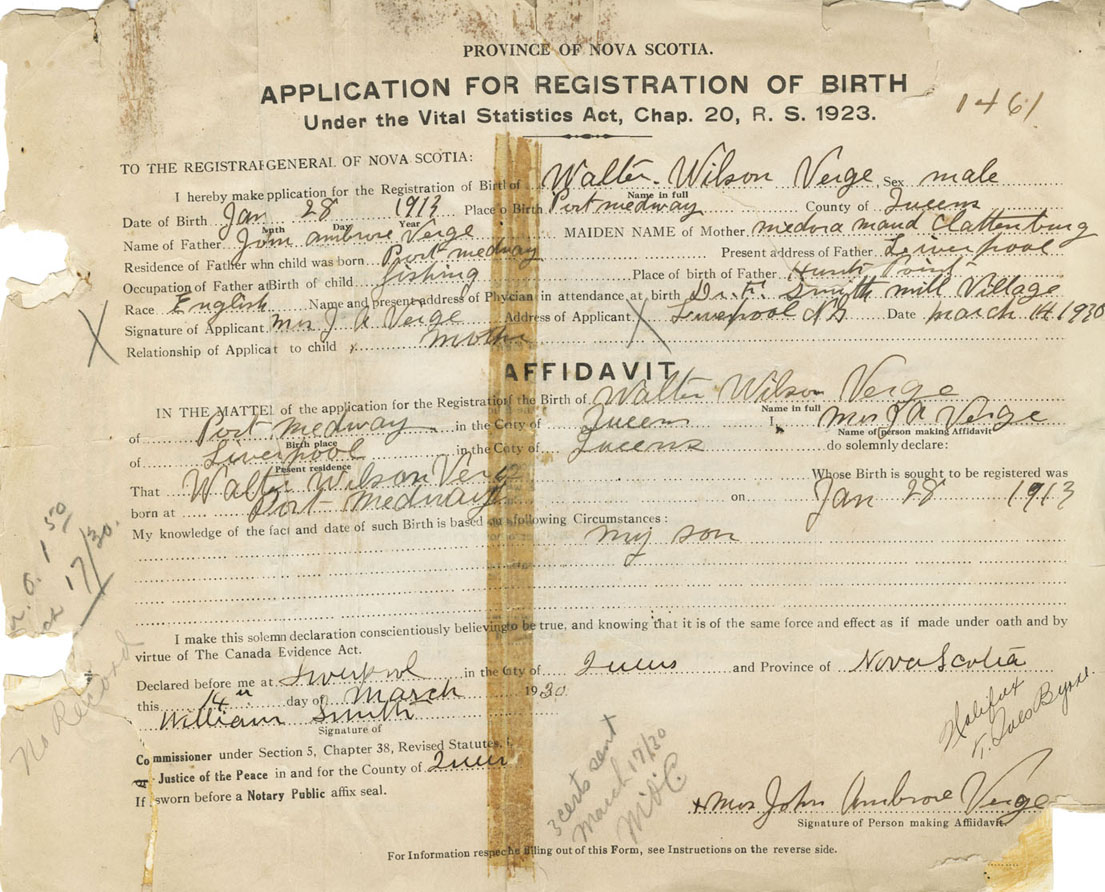 PROVINCE OF NOVA SCOTIA.
APPLICATION FOR REGISTRATION OF BIRTH
1461
Under the Vital Statistics Act, Chap. 20, R. S. 1923.
TO THE REGISTRAR GENERAL OF NOVA SCOTIA:
I hereby make pplication for the Registration of Birth of Walter Wilson Verge Sex male
Name in full
Date of Birth Jan 28 1913 Place o Birth Port medway County of Queens
Month Day Year
Name of Father John ambrose Verge MAIDEN NAME of Mother medora maud Clattenburg
Residence of Father whn child was born Port medway Present address of Father Liverpool
Occupation of Father at Birth of child fishing Place of birth of Father Hunts Point
Race English Name and present address of Phycian in attendance at birth Smith mill Village
X Signature of Applicant Mrs J A Verge Address of Applicant X Liverpool NS Date march 14 1930
Relationship of Applicat to child mother
AFFIDAVIT
IN THE MATTE of the application for the Registration of the Birth of Walter Wilson Verge
Name in full
of Port medway in the Conty of Queens I, Mrs J A Verge
Birth place Name of person making Affidavit
of Liverpool in the Conty of Queens do solemnly declare:
Present residence
That Walter Wilson Verge Whose Birth is sought to be registered was
born at Port Medway on Jan 28 1913
My knowledge of the fact and date of such Birth is based on following Circumstances:
my son
I make this solemn declaration conscientiously believing to be true, and knowing that it is of the same force and effect as if made under oath and by
virtue of The Canada Evidence Act.
Declared before me at Liverpool in the Cnty of Queens and Province of Nova Scotia
this 14th day of March 1930
William Smith
Signature of
Commissioner under Section 5, Chapter 38, Revised Statutes.
or Justice of the Peace in and for the County of Queens
If sworn before a Notary Public affix seal.
+ Mrs John Ambrose Verge
Signature of Person making Affidavit.
For Information respecting filling out of this Form, see Instructions on the reverse side.
1 50
17/30.
No Record
3 certs sent
March 17/30
Halifax